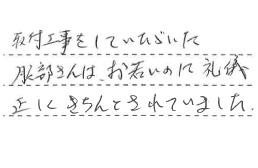 取付工事をしていただいた
服部さんは、お若いのに礼儀
正しくきちんとされていました。